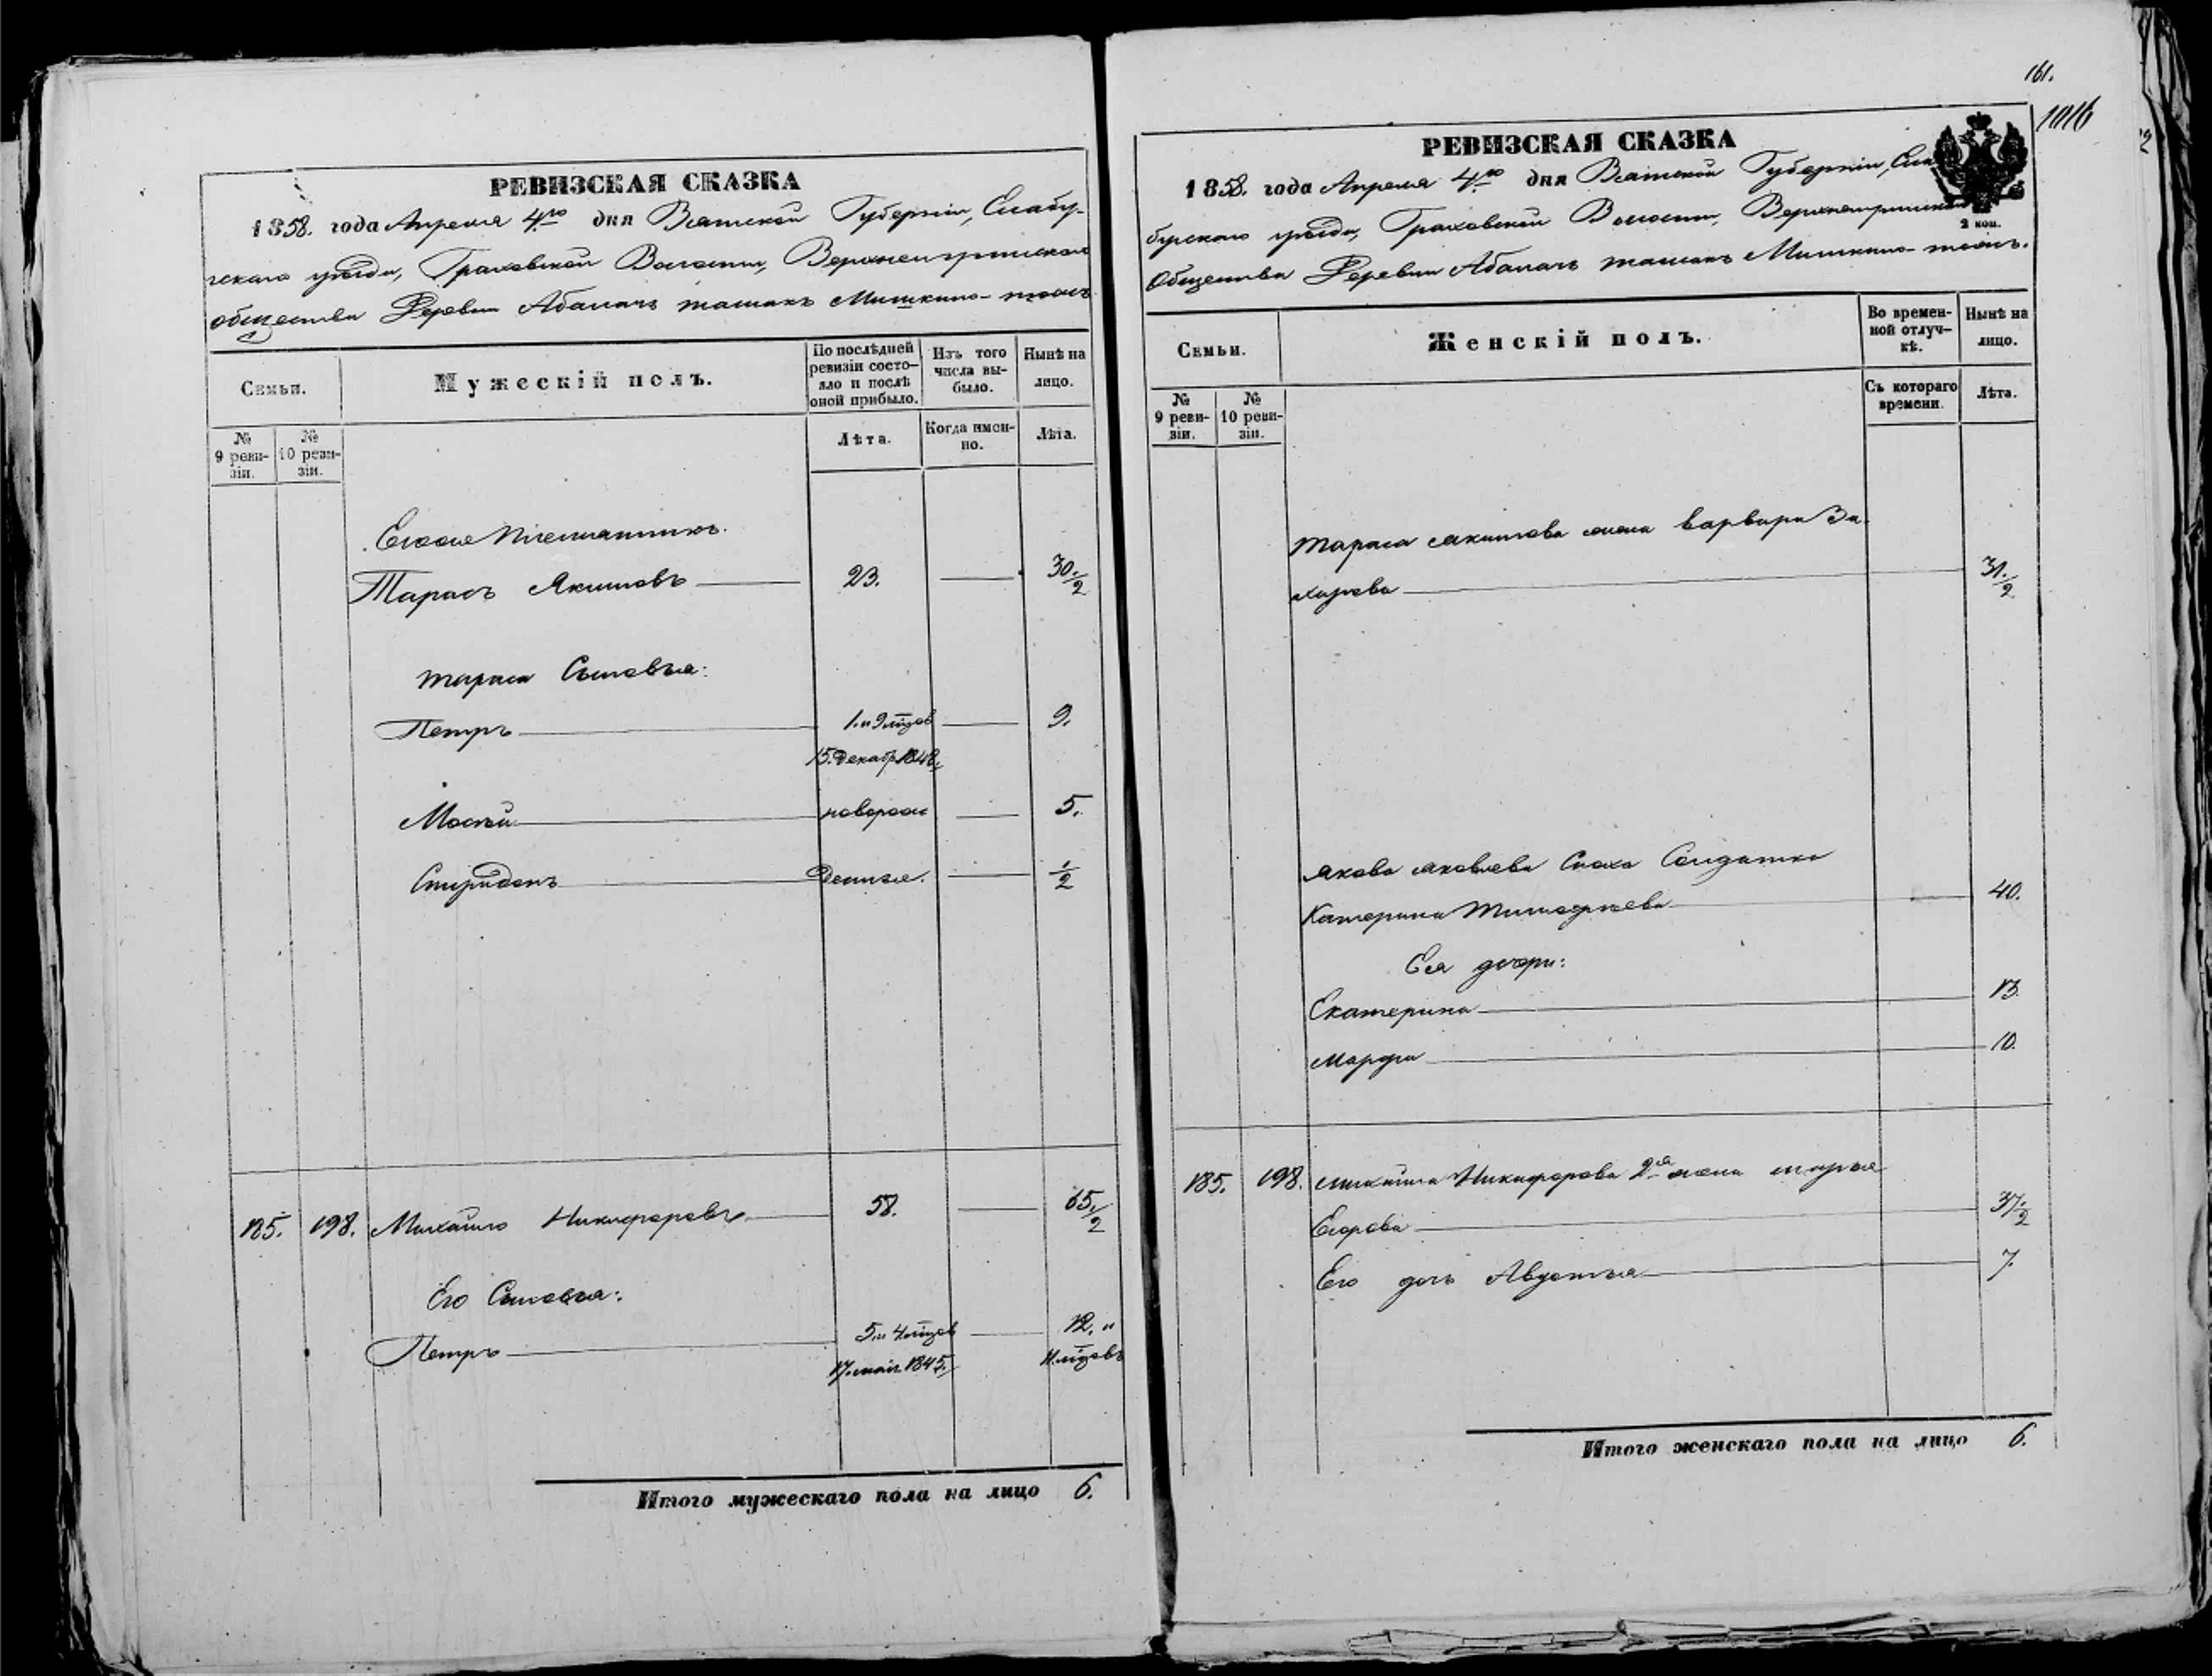 РЕВИЗСКАЯ СКАЗКА
1858. года Апреля 4го дня Вятской Губернiи, Елабу-
гскаго уѣзда, Граховской Волости,
общества Деревни Абаланъ ташакъ Мишкино-тожъ
Семьи.
Мужескiй полъ.
По послѣдней ревизiи состо-яло и послѣ оной прибыло.
Изъ того числа вы-было.
Нынѣ на лицо.
№ 9 реви-зiи.
№ 10 реви-зiи.
Лѣта.
Когда имен-но.
Лѣта.
Племянникъ.
Тарасъ Якимовъ 23. 30 1/2
Тараса Сыновья:
Петръ 1. и 9 мцов 9.
15. Декабр. 1848.
Мосѣй новорож 5.
Спиридонъ 1/2
185. 198. Михайло Никифоровъ 58. 65 1/2
Его Сыновья:
Петръ 5. и 4 мцов 12. и
17. маiя 1845. 11 мцовъ
Итого мужескаго пола на лицо 6.
161.
1016
РЕВИЗСКАЯ СКАЗКА
1858. года Апреля 4го дня Вятской Губернiи, Ела
бугскаго уѣзда, Граховской Волости,
2 коп.
Общества Деревни Абаланъ ташакъ Мишкино-тожъ.
Семьи.
Женскiй полъ.
Во времен-ной отлуч-кѣ.
Нынѣ на лицо.
№ 9 реви-зiи.
№ 10 реви-зiи.
Съ котораго времени.
Лѣта.
Тараса Якимова жена Варвара За-
харова 31 1/2
Якова Яковлева Сноха Солдатка
Катерина Тимофѣева 40.
Ея дочери:
Екатерина 13.
Марфа 10.
185. 198. Михайла Никифорова 2я жена Марья
Егорова 37 1/2
Его дочь Авдотья 7.
Итого женскаго пола на лицо 6.